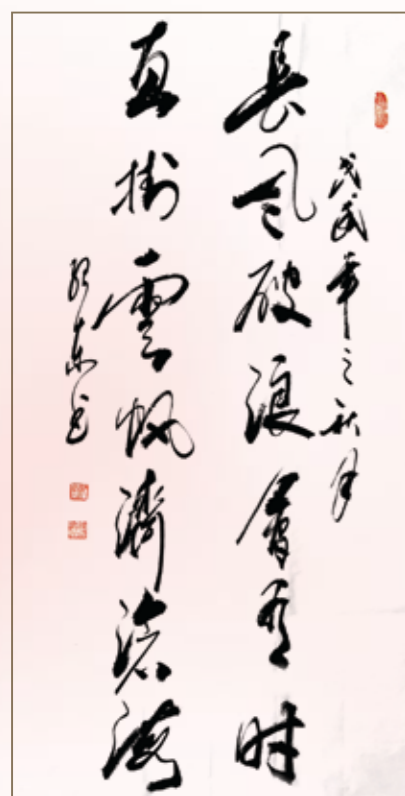 戊戌年之秋月
長風破浪會有時
直掛雲帆濟滄海
東書